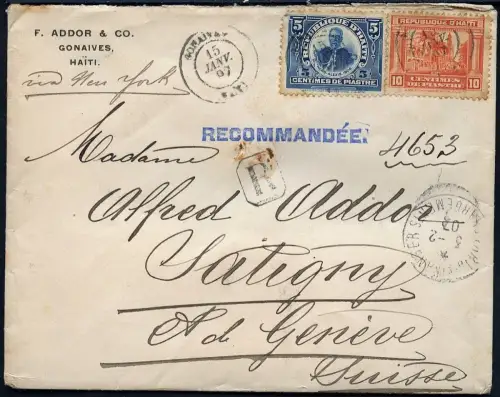 F. ADDOR & CO.
GONAIVES,
HAÏTI.
via New York
GONAIVES
15
JANV.
07
HAITI
5 5
REPUBLIQUE D'HAITI
5 5
CENTIMES DE PIASTRE
REPUBLIQUE D'HAITI
10 10
CENTIMES
DE PIASTRE
RECOMMANDÉE.
4653
R
Madame
Alfred Addor
Satigny
Ct de Genève
Suisse
3-2
07